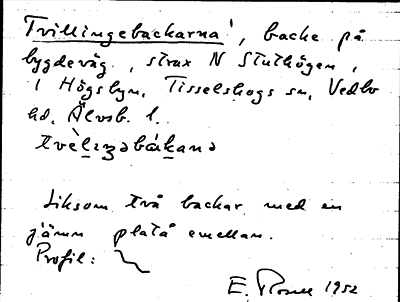 Tvillingebackarna, backe på
bygdeväg, strax N Stuthögen,
i Högsbyn, Tisselskogs sn, Vedbo
hd. Älvsb. l.
tvèlizəbákana
Liksom två backar med en
jämn platå emellan.
Profil:
E. Rosell 1952